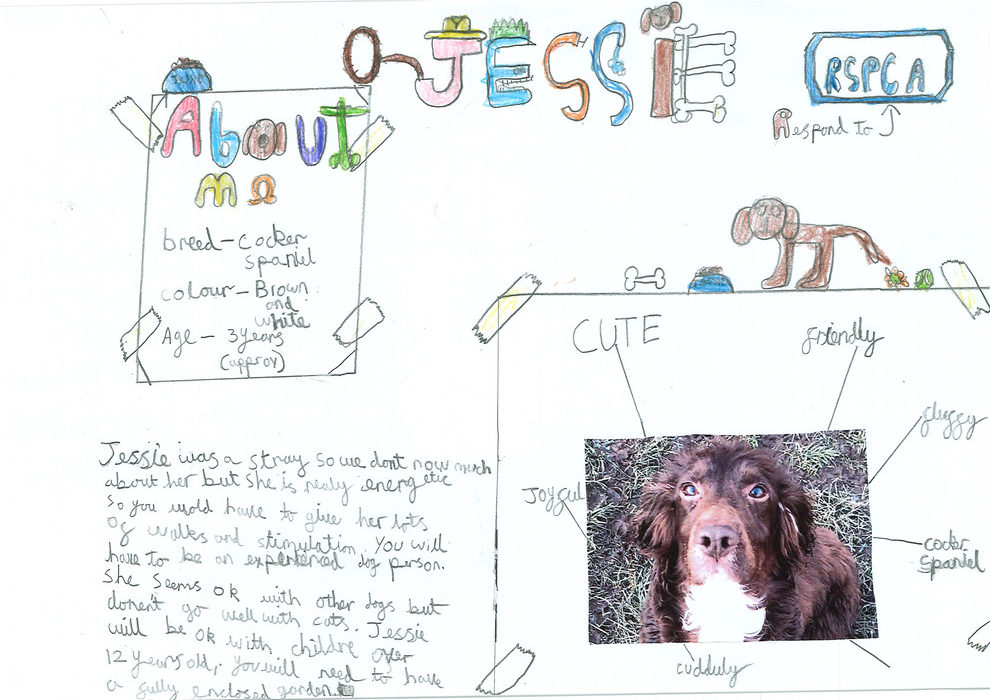 JESSiE
RSPCA
Respond to
About
me
breed - cocker
spaniel
colour - Brown
and
white
Age - 3 years
(approx)
CUTE
friendly
fluffy
Joyful
cocker
spaniel
cudduly
Jessie was a stray so we dont now much
about her but she is realy energetic
so you would have to give her lots
of walks and stimulation. You will
have to be an experienced dog person.
She seems ok with other dogs but
doesn't go well with cats. Jessie
will be ok with childre over
12 years old, you will need to have
a fully enclosed garden.